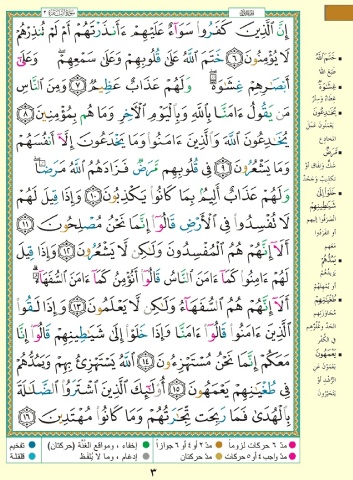 إِنَّ ٱلَّذِينَ كَفَرُوا۟ سَوَآءٌ عَلَيْهِمْ ءَأَنذَرْتَهُمْ أَمْ لَمْ تُنذِرْهُمْ
لَا يُؤْمِنُونَ ﴿٦﴾ خَتَمَ ٱللَّهُ عَلَىٰ قُلُوبِهِمْ وَعَلَىٰ سَمْعِهِمْ ۖ وَعَلَىٰٓ
أَبْصَـٰرِهِمْ غِشَـٰوَةٌ ۖ وَلَهُمْ عَذَابٌ عَظِيمٌ ﴿٧﴾ وَمِنَ ٱلنَّاسِ
مَن يَقُولُ ءَامَنَّا بِٱللَّهِ وَبِٱلْيَوْمِ ٱلْـَٔاخِرِ وَمَا هُم بِمُؤْمِنِينَ ﴿٨﴾
يُخَـٰدِعُونَ ٱللَّهَ وَٱلَّذِينَ ءَامَنُوا۟ وَمَا يَخْدَعُونَ إِلَّآ أَنفُسَهُمْ
وَمَا يَشْعُرُونَ ﴿٩﴾ فِى قُلُوبِهِم مَّرَضٌ فَزَادَهُمُ ٱللَّهُ مَرَضًا ۖ
وَلَهُمْ عَذَابٌ أَلِيمٌۢ بِمَا كَانُوا۟ يَكْذِبُونَ ﴿١٠﴾ وَإِذَا قِيلَ لَهُمْ
لَا تُفْسِدُوا۟ فِى ٱلْأَرْضِ قَالُوٓا۟ إِنَّمَا نَحْنُ مُصْلِحُونَ ﴿١١﴾
أَلَآ إِنَّهُمْ هُمُ ٱلْمُفْسِدُونَ وَلَـٰكِن لَّا يَشْعُرُونَ ﴿١٢﴾ وَإِذَا قِيلَ
لَهُمْ ءَامِنُوا۟ كَمَآ ءَامَنَ ٱلنَّاسُ قَالُوٓا۟ أَنُؤْمِنُ كَمَآ ءَامَنَ ٱلسُّفَهَآءُ ۗ
أَلَآ إِنَّهُمْ هُمُ ٱلسُّفَهَآءُ وَلَـٰكِن لَّا يَعْلَمُونَ ﴿١٣﴾ وَإِذَا لَقُوا۟
ٱلَّذِينَ ءَامَنُوا۟ قَالُوٓا۟ ءَامَنَّا وَإِذَا خَلَوْا۟ إِلَىٰ شَيَـٰطِينِهِمْ قَالُوٓا۟ إِنَّا
مَعَكُمْ إِنَّمَا نَحْنُ مُسْتَهْزِءُونَ ﴿١٤﴾ ٱللَّهُ يَسْتَهْزِئُ بِهِمْ وَيَمُدُّهُمْ
فِى طُغْيَـٰنِهِمْ يَعْمَهُونَ ﴿١٥﴾ أُو۟لَـٰٓئِكَ ٱلَّذِينَ ٱشْتَرَوُا۟ ٱلضَّلَـٰلَةَ
بِٱلْهُدَىٰ فَمَا رَبِحَت تِّجَـٰرَتُهُمْ وَمَا كَانُوا۟ مُهْتَدِينَ ﴿١٦﴾
خَتَمَ اللّٰهُ
طَبَعَ اللّٰهُ
غِشَاوَةٌ
غِطَاءٌ وَسِتْرٌ
يُخَادِعُونَ
مَرَضٌ
خَلَوْا إِلَى
شَيَاطِينِهِمْ
يَمُدُّهُمْ
طُغْيَانِهِمْ
يَعْمَهُونَ
مدّ ٦ حركات لزوماً مدّ ٢ أو ٤ أو ٦ جوازاً إخفاء، ومواقع الغُنَّة (حركتان) تفخيم
مدّ واجب ٤ أو ٥ حركات مدّ حركتان إدغام، وما لا يُلفَظ قلقلة
٣